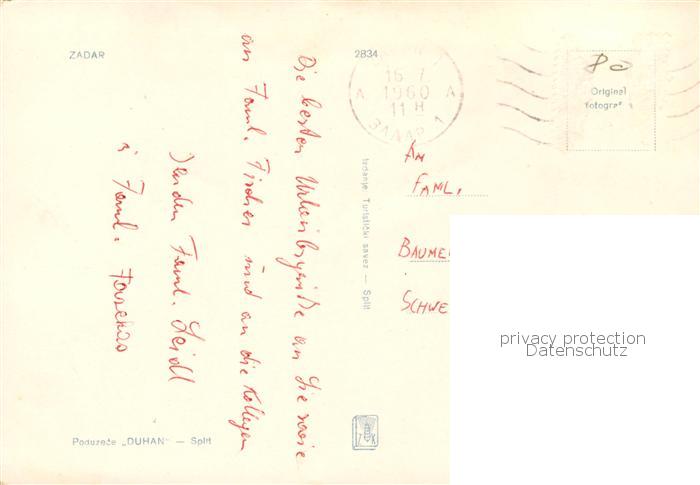 ZADAR
2834
16 7
A 1960 A
11 H
ЗАДАР 1
80
Original
fotografija
Die besten Urlaubsgrüße an Sie sowie
an Faml. Fischer und an die Kollegen
senden Faml. Seidl
u Faml.
Izdanje: Turistički savez — Split
AN
FAML.
BAUME
SCHWE
privacy protection
Datenschutz
Poduzeće „DUHAN" — Split